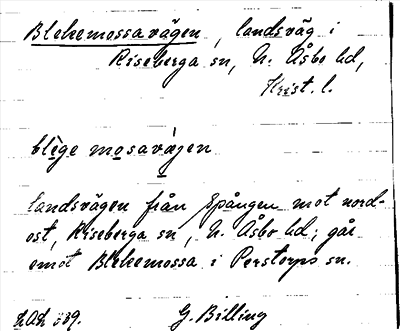 Blekemossavägen, landsväg i
Riseberga sn, N. Åsbo hd,
Krist. l.
blège mosavägen
landsvägen från Spången mot nord-
ost, Riseberga sn, N. Åsbo hd; går
emot Blekemossa i Perstorps sn.
G. Billing